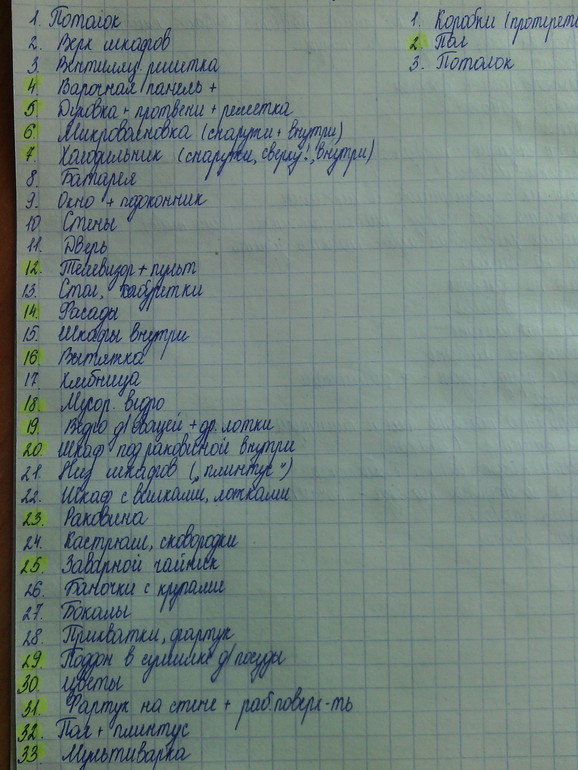 1. Потолок
2. Верх шкафов
3. Вентиляц решетка
4. Варочная панель +
5. Духовка + противени + решетка
6. Микроволновка (снаружи + внутри)
7. Холодильник (снаружи, сверху!, внутри)
8. Батарея
9. Окно + подоконник
10. Стены
11. Дверь
12. Телевизор + пульт
13. Стол, табуретки
14. Фасады
15. Шкафы внутри
16. Вытяжка
17. Хлебница
18. Мусор. ведро
19. Ведро д/овощей + др. лотки
20. Шкаф под раковиной внутри
21. Низ шкафов („плинтус“)
22. Шкаф с вилками, лотками
23. Раковина
24. Кастрюли, сковородки
25. Заварной чайник
26. Баночки с крупами
27. Бокалы
28. Прихватки, фартук
29. Поддон в сушилке д/посуды
30. Цветы
31. Фартук на стене + раб.поверх-ть
32. Пол + плинтус
33. Мультиварка
1. Коробки (протереть
2. Пол
3. Потолок